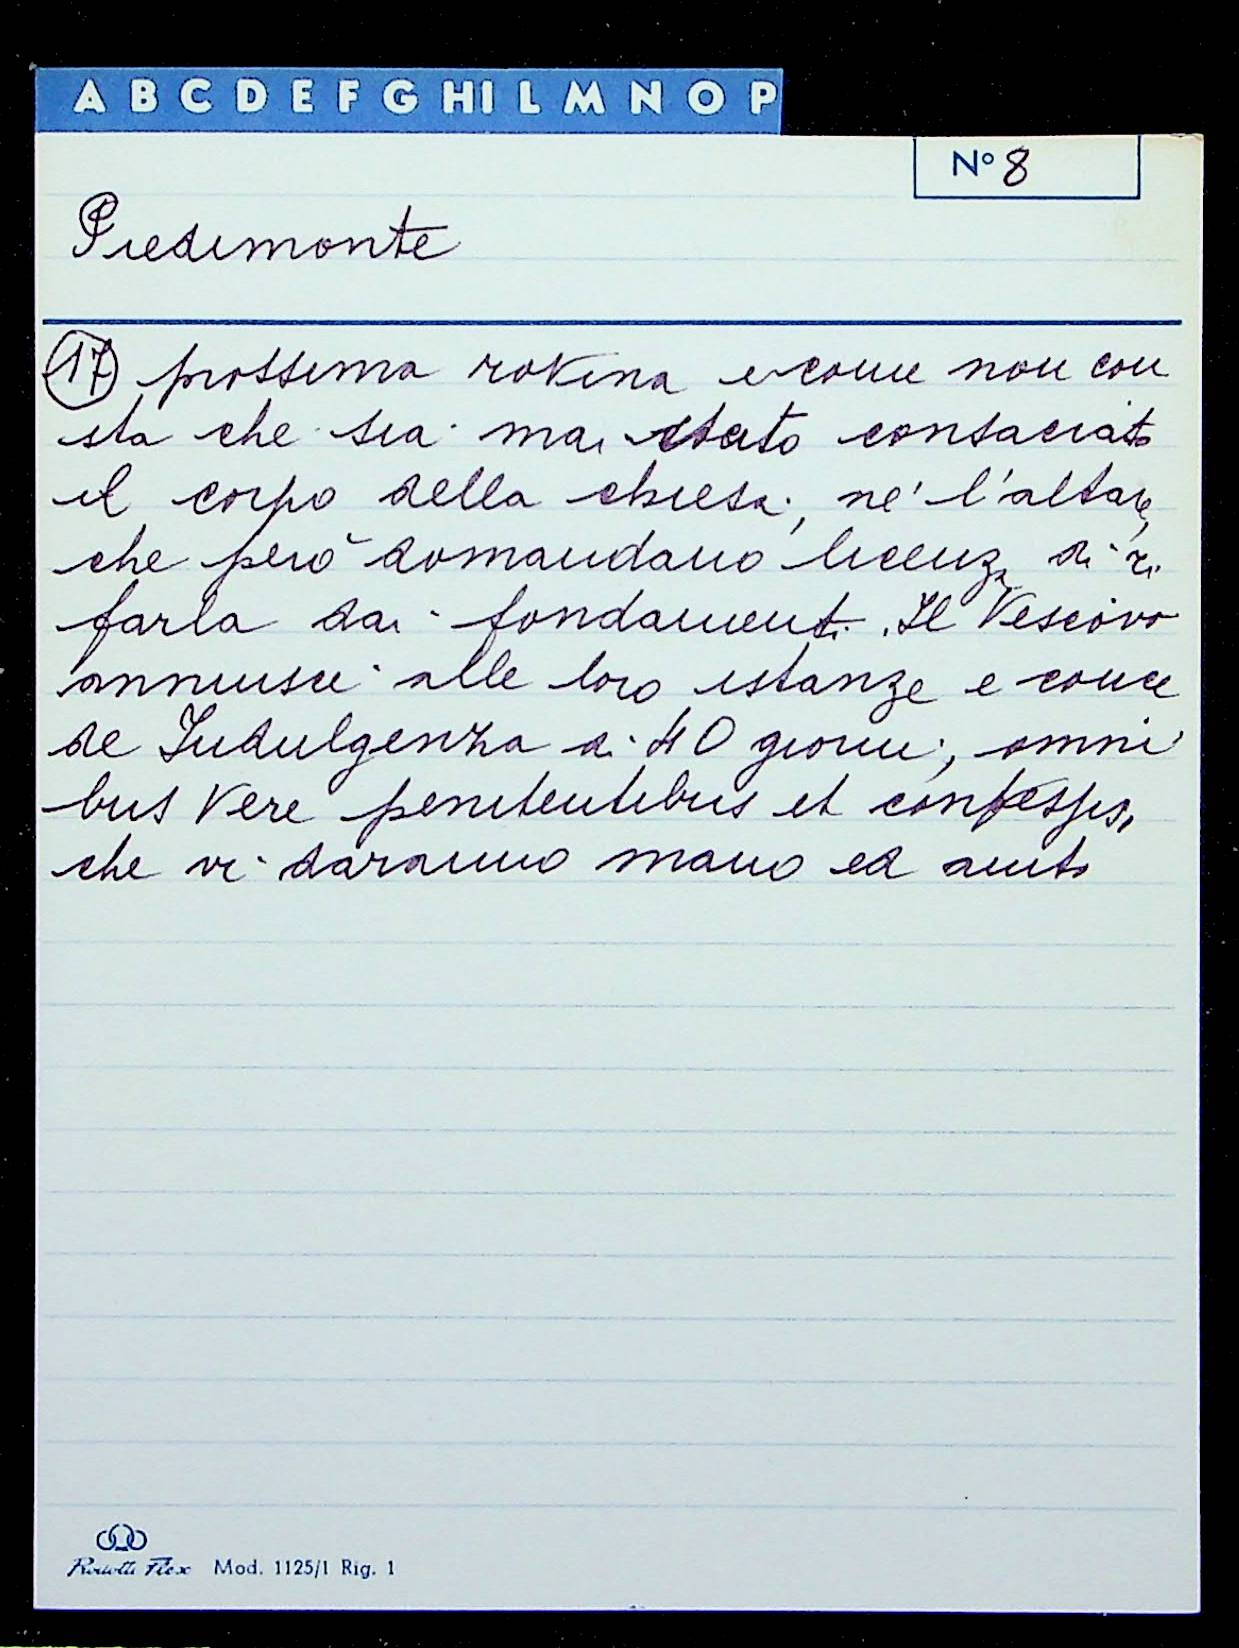 A B C D E F G HI L M N O P
N° 8
Piedimonte
17 prossima rovina e come non con
sta che sia mai stato consacrato
il corpo della chiesa, né l'altare,
che però domandano licenza di ri
farla dai fondamenti. Il Vescovo
annuisce alle loro istanze e conce
de Indulgenza di 40 giorni, omni
bus vere penitentibus et confessis,
che vi daranno mano ed aiuto
Mod. 1125/1 Rig. 1